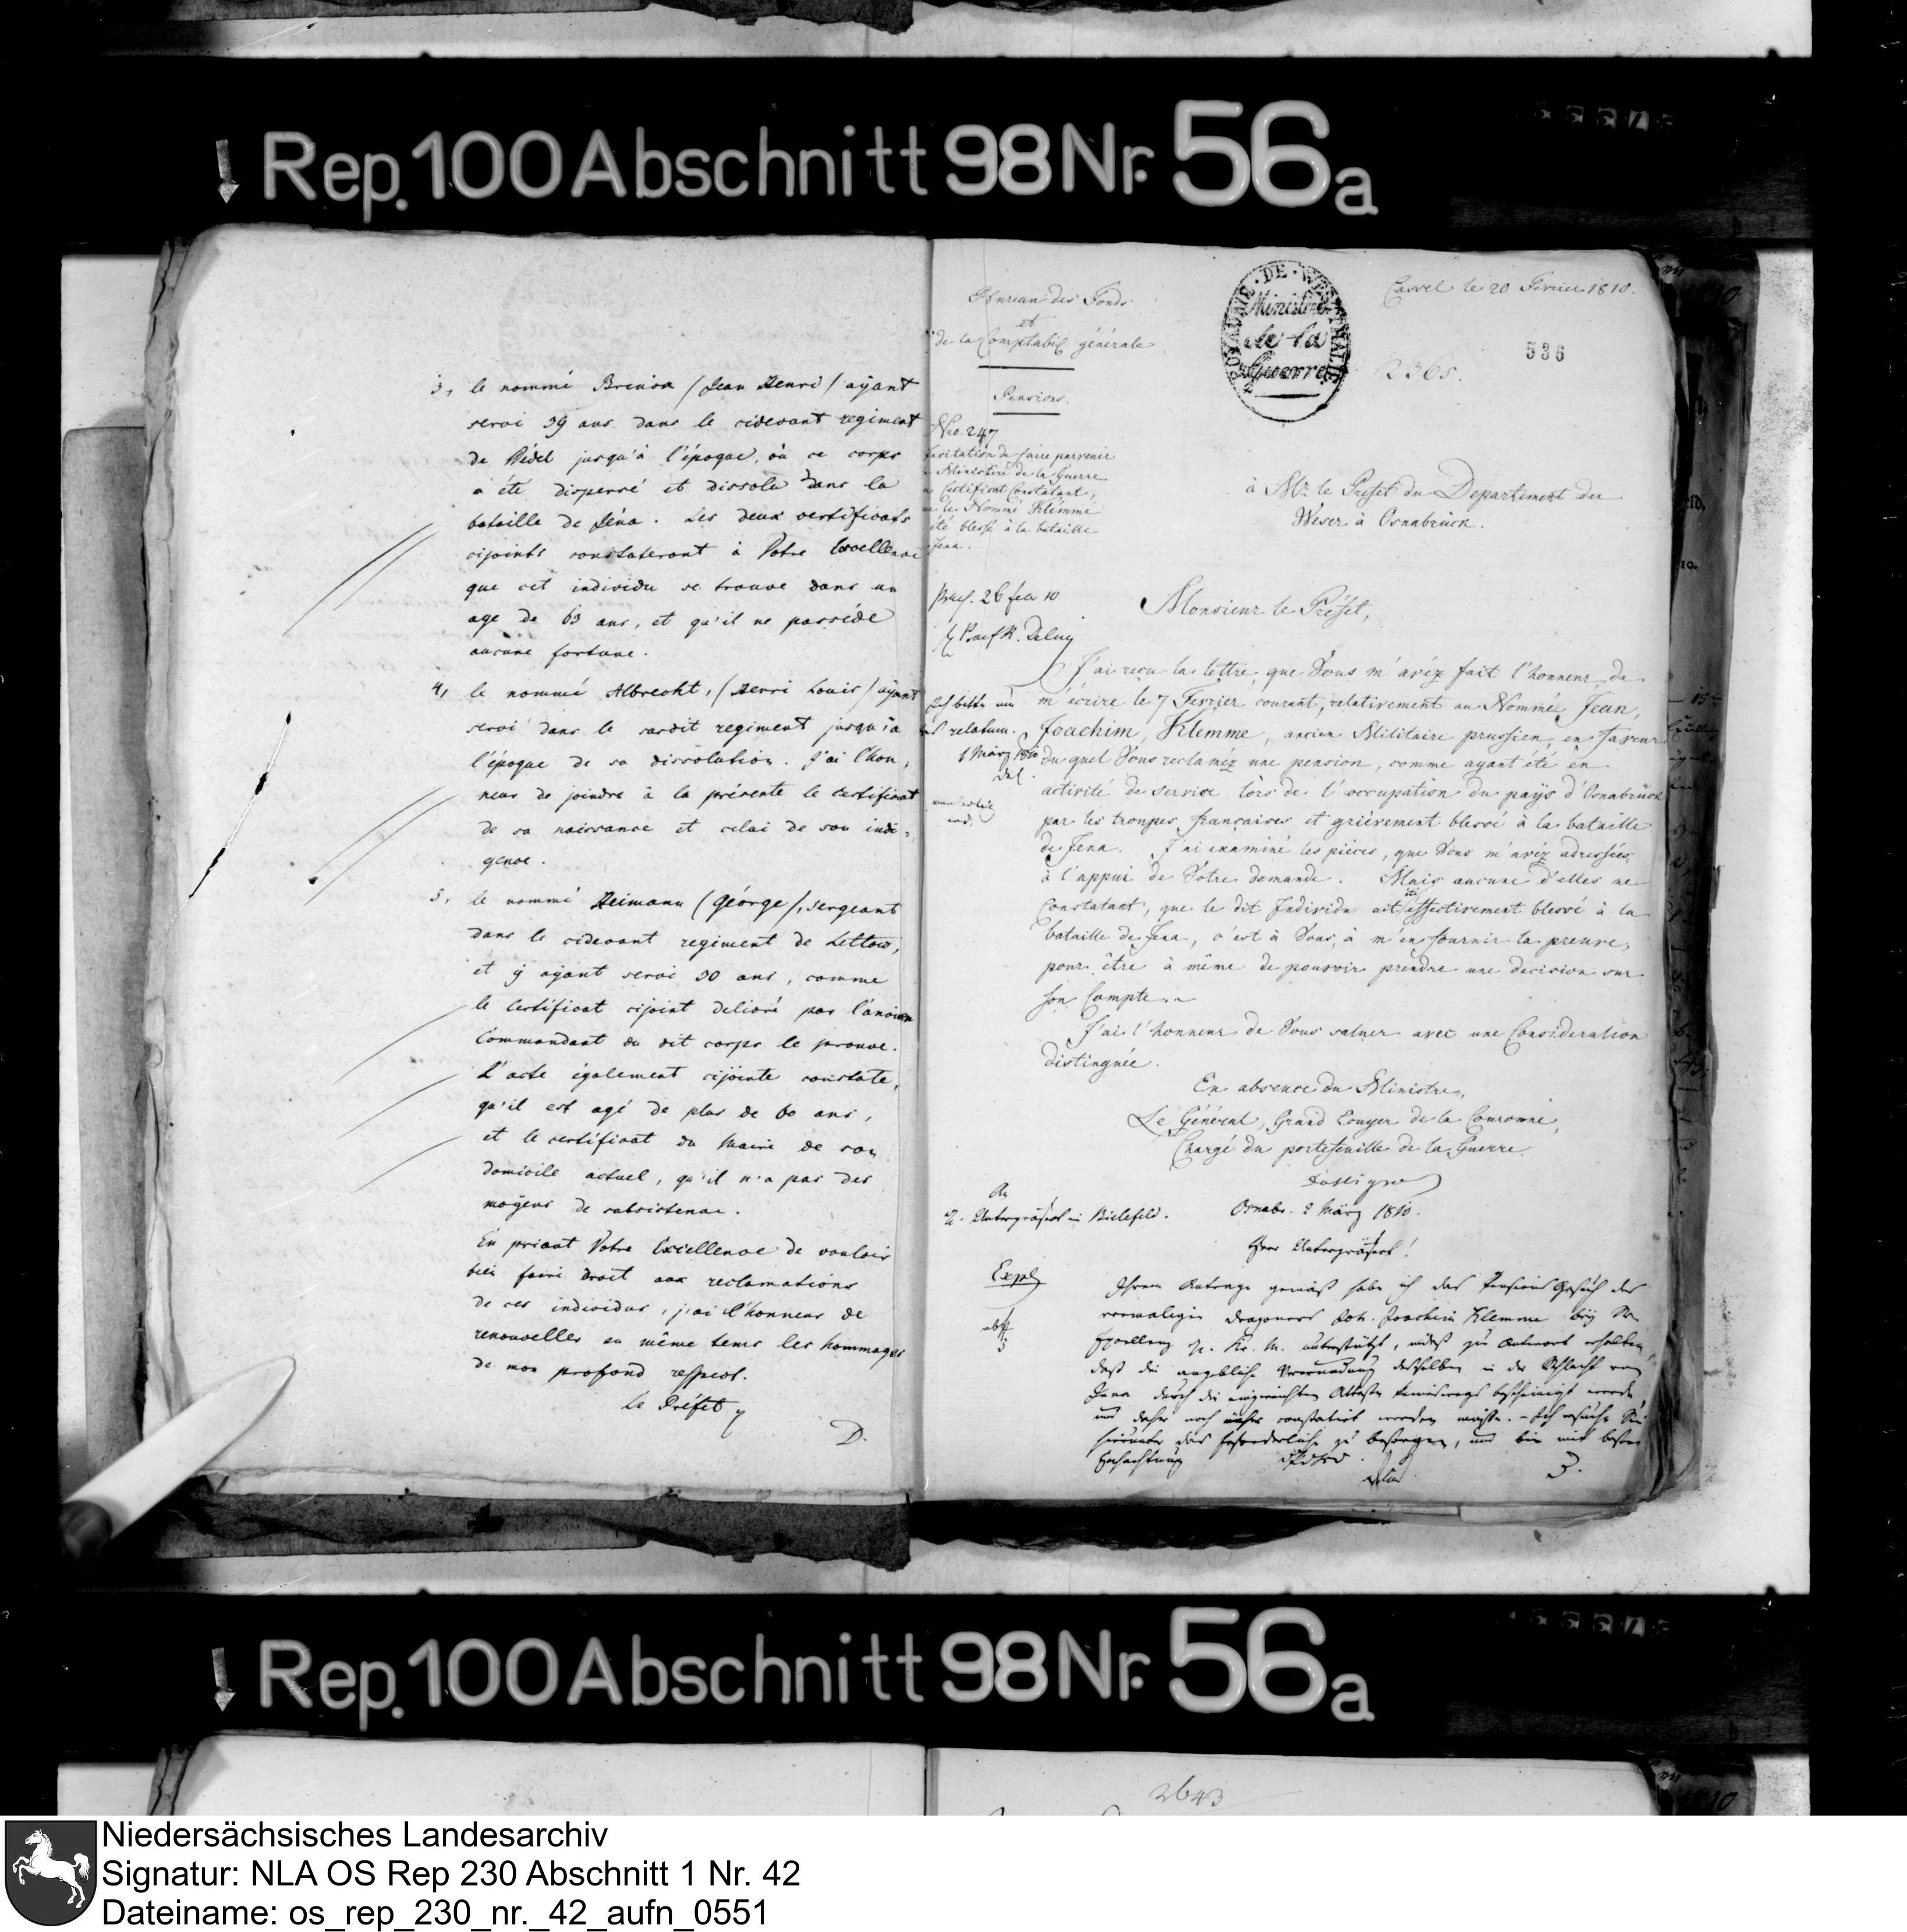 Rep. 100 Abschnitt 98 Nr. 56a
3, le nommé (Jean Henri) ayant
servi 39 ans dans le cidevant regiment
de jusqu'à l'époque, où ce corps
a été dispersé et dissolu dans la
bataille de Jéna. Les deux certificats
cijoints constateront à Votre Excellence
que cet individu se trouve dans un
age de 63 ans, et qu'il ne possède
aucune fortune.
4, le nommé Albrecht, (Henri Louis) ayant
servi dans le susdit regiment jusqu'à
l'époque de sa dissolution. J'ai l'hon,
neur de joindre à la présente le certificat
de sa naissance et celui de son indi,
gence.
5, le nommé Heimann (George), sergeant
dans le cidevant regiment de Lettow,
et y ayant servi 30 ans, comme
le certificat cijoint delivré par l'ancien
Commandant du dit corps le prouve.
L'acte également cijointe constate,
qu'il est agé de plus de 60 ans,
et le certificat du Maire de son
domicile actuel, qu'il n'a pas des
moyens de subsistence.
En priant Votre Excellence de vouloir
bien faire droit aux reclamations
de ces individus, j'ai l'honneur de
renouveller en même tems les hommages
de mon profond respect.
Le Préfet
D.
Bureau des Fonds
et
de la Comptabil. générale
Pensions.
No. 247
Invitation de faire parvenir
Ministère de la Guerre
Certificat Constatant,
le Nommé Klemme
été blessé à la bataille
Jena.
ROYAUME · DE · WESTPHALIE
Ministère
de la
Guerre
Cassel le 20 Fevrier 1810.
536
2365.
à Mr. le Préfet du Departement du
Weser à Osnabrück.
26 febr 10
Monsieur le Préfet,
J'ai reçu la lettre, que Vous m'avéz fait l'honneur de
m'écrire le 7 Fevrier courant, relativement au Nommé Jean,
Joachim, Klemme, ancien Militaire prussien, en faveur
du quel Vous reclaméz une pension, comme ayant été en
activité de service lors de l'occupation du pays d'Osnabrück
par les troupes françaises et grièvement blessé à la bataille
de Jena. J'ai examiné les pièces, que Vous m'avéz adressées,
à l'appui de Votre demande. Mais aucune d'elles ne
constatant, que le dit Individu ait été effectivement blessé à la
bataille de Jena, c'est à Vous, à m'en fournir la preuve,
pour être à même de pouvoir prendre une decision sur
son Compte.
J'ai l'honneur de Vous saluer avec une Consideration
distinguée.
En absence du Ministre,
Le Général, Grand Ecuyer de la Couronne,
Chargé du portefeuille de la Guerre.
relatum.
1 März 1810
An
H. Unterpräfect in Bielefeld.
Osnabr. 2 März 1810.
Herr Unterpräfect!
Expd
Ihrem Antrage gemäß habe ich das Pensions Gesuch des
vormaligen Dragoners Joh. Joachim Klemme bey Sr.
Excellenz H. Kr. M. unterstützt, indeß zur Antwort erhalten,
daß die angebliche Verwundung desselben in der Schlacht von
Jena durch die eingereichten Atteste keineswegs bescheinigt werde,
und daher noch näher constatirt werden müsse. – Ich ersuche Sie
hierunter das Erforderliche zu besorgen, und bin mit bester
Hochachtung
Rep. 100 Abschnitt 98 Nr. 56a
2643
Niedersächsisches Landesarchiv
Signatur: NLA OS Rep 230 Abschnitt 1 Nr. 42
Dateiname: os_rep_230_nr._42_aufn_0551